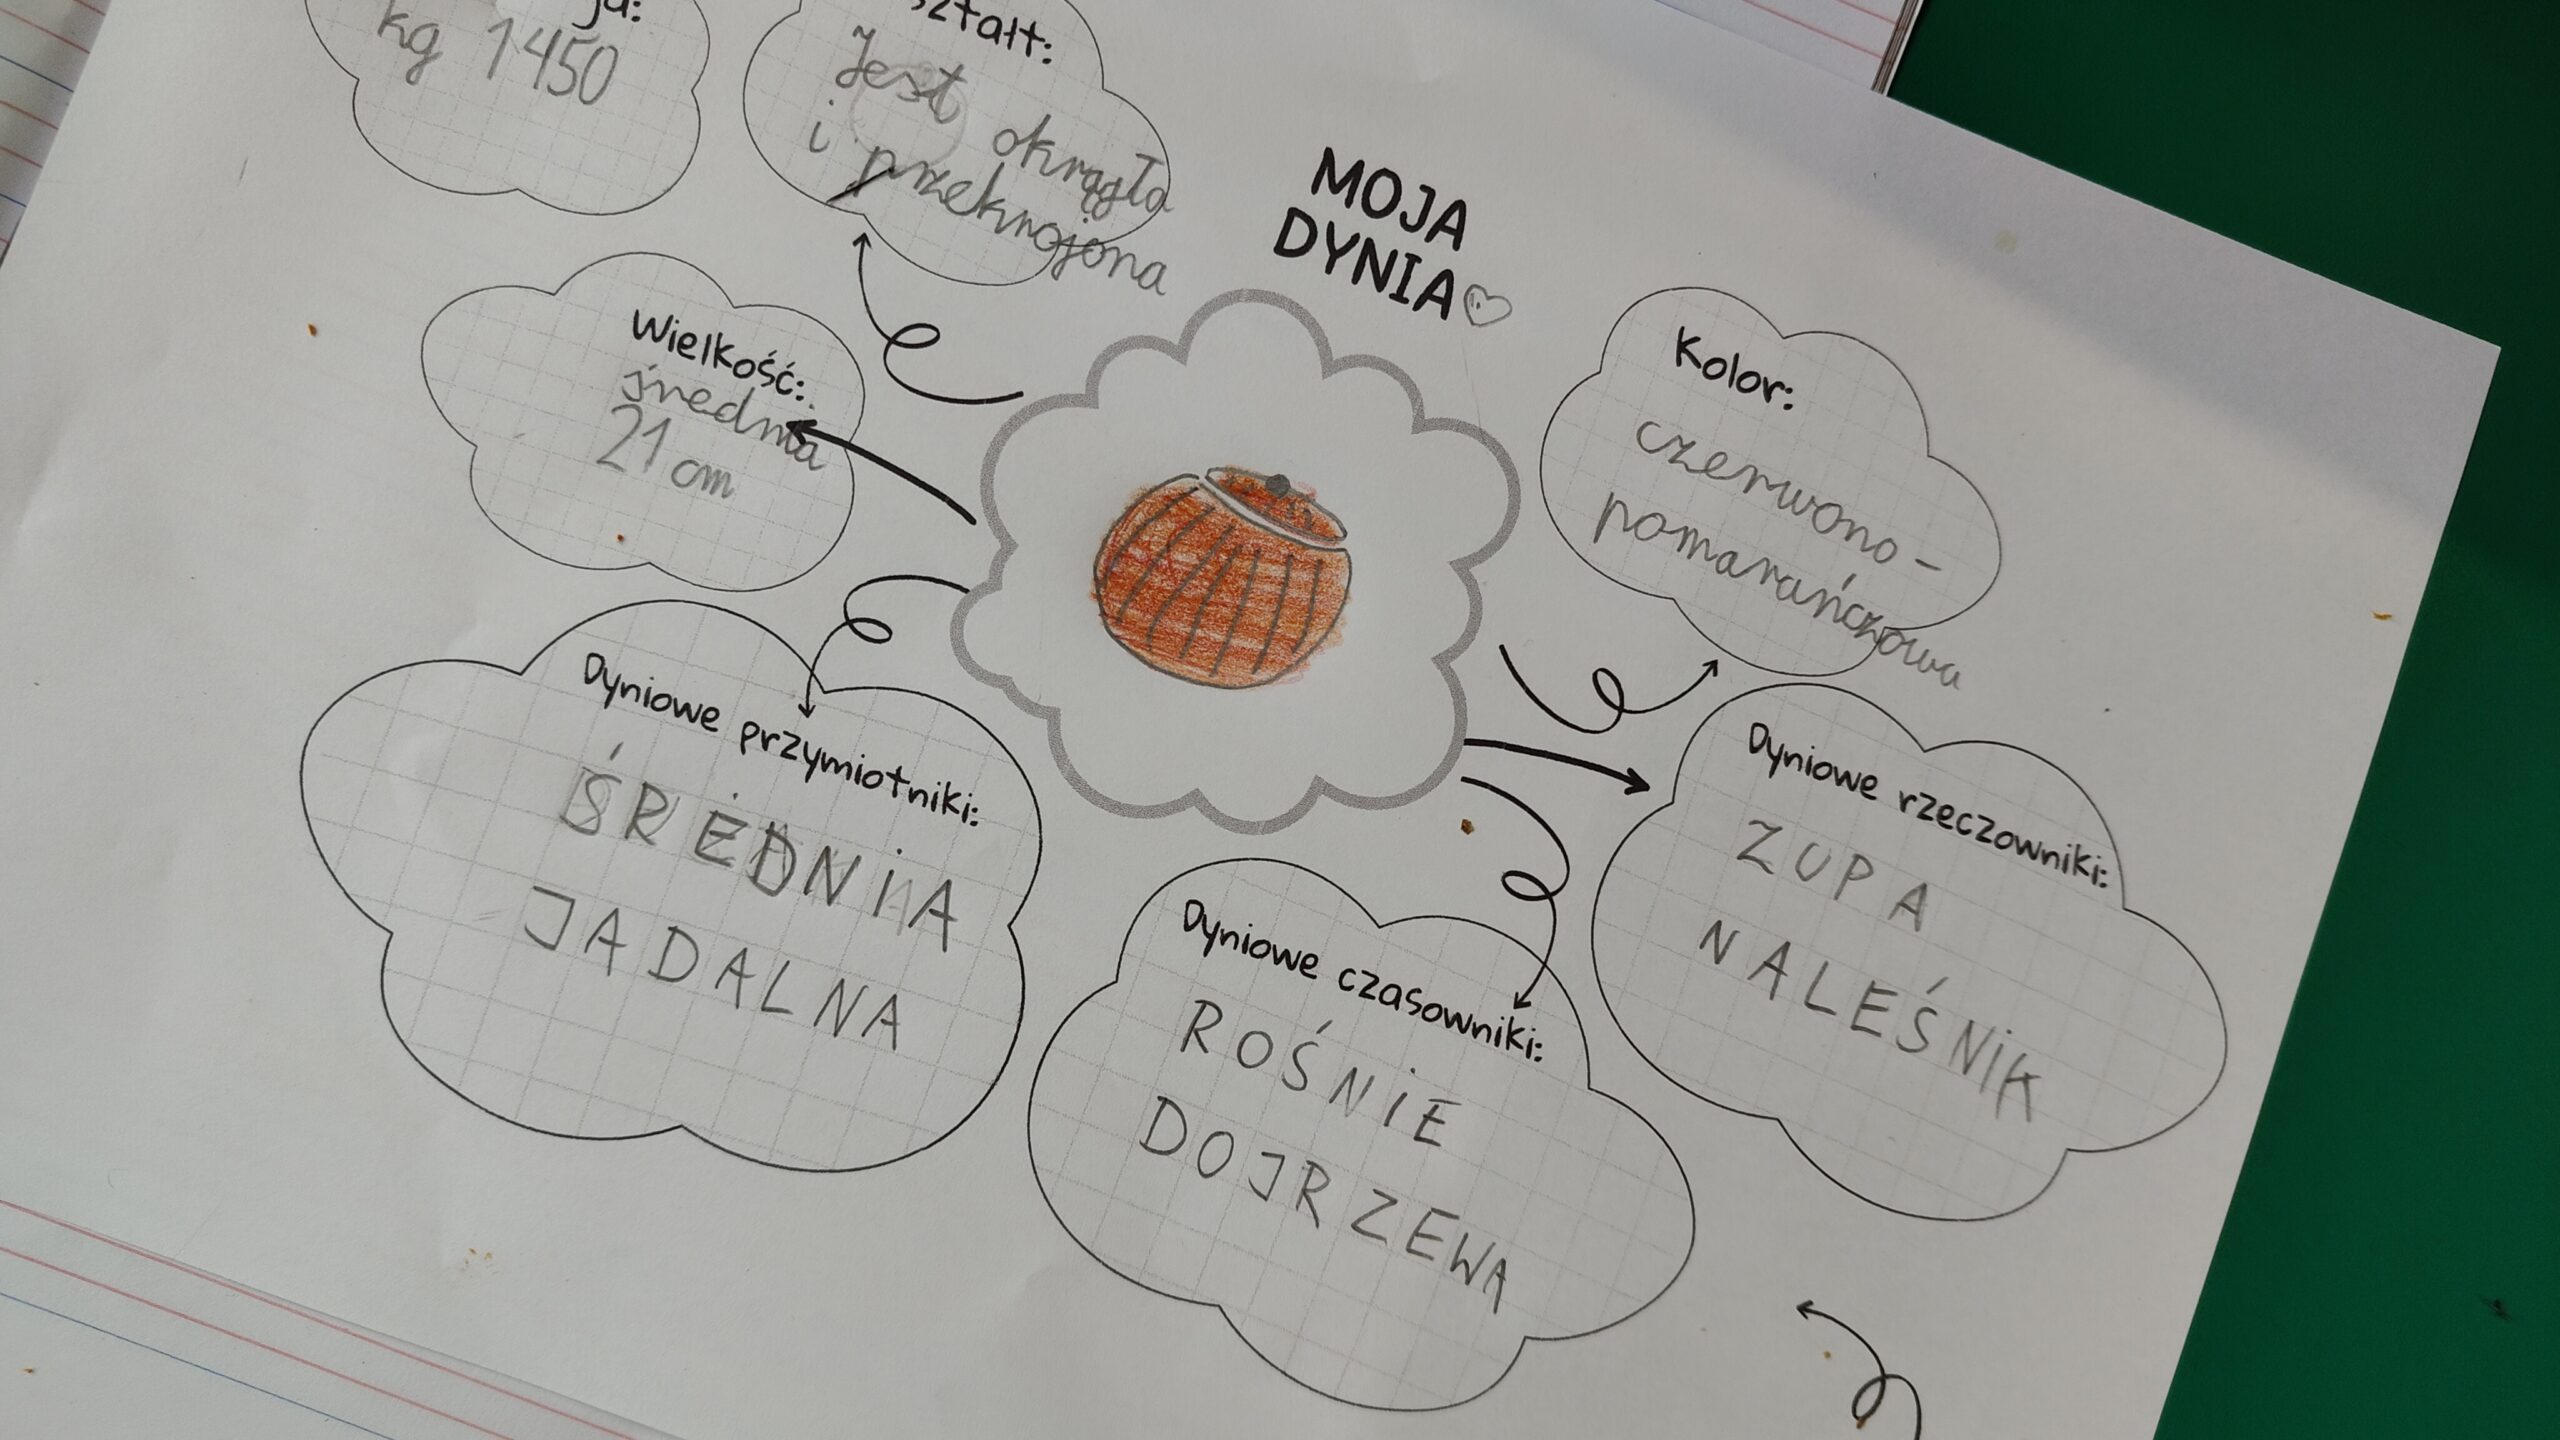 kg 1450
Jest okrągła
i przekrojona
MOJA
DYNIA
Wielkość:
średnia
21 cm
Kolor:
czerwono-
pomarańczowa
Dyniowe przymiotniki:
ŚREDNIA
JADALNA
Dyniowe czasowniki:
ROŚNIE
DOJRZEWA
Dyniowe rzeczowniki:
ZUPA
NALEŚNIK